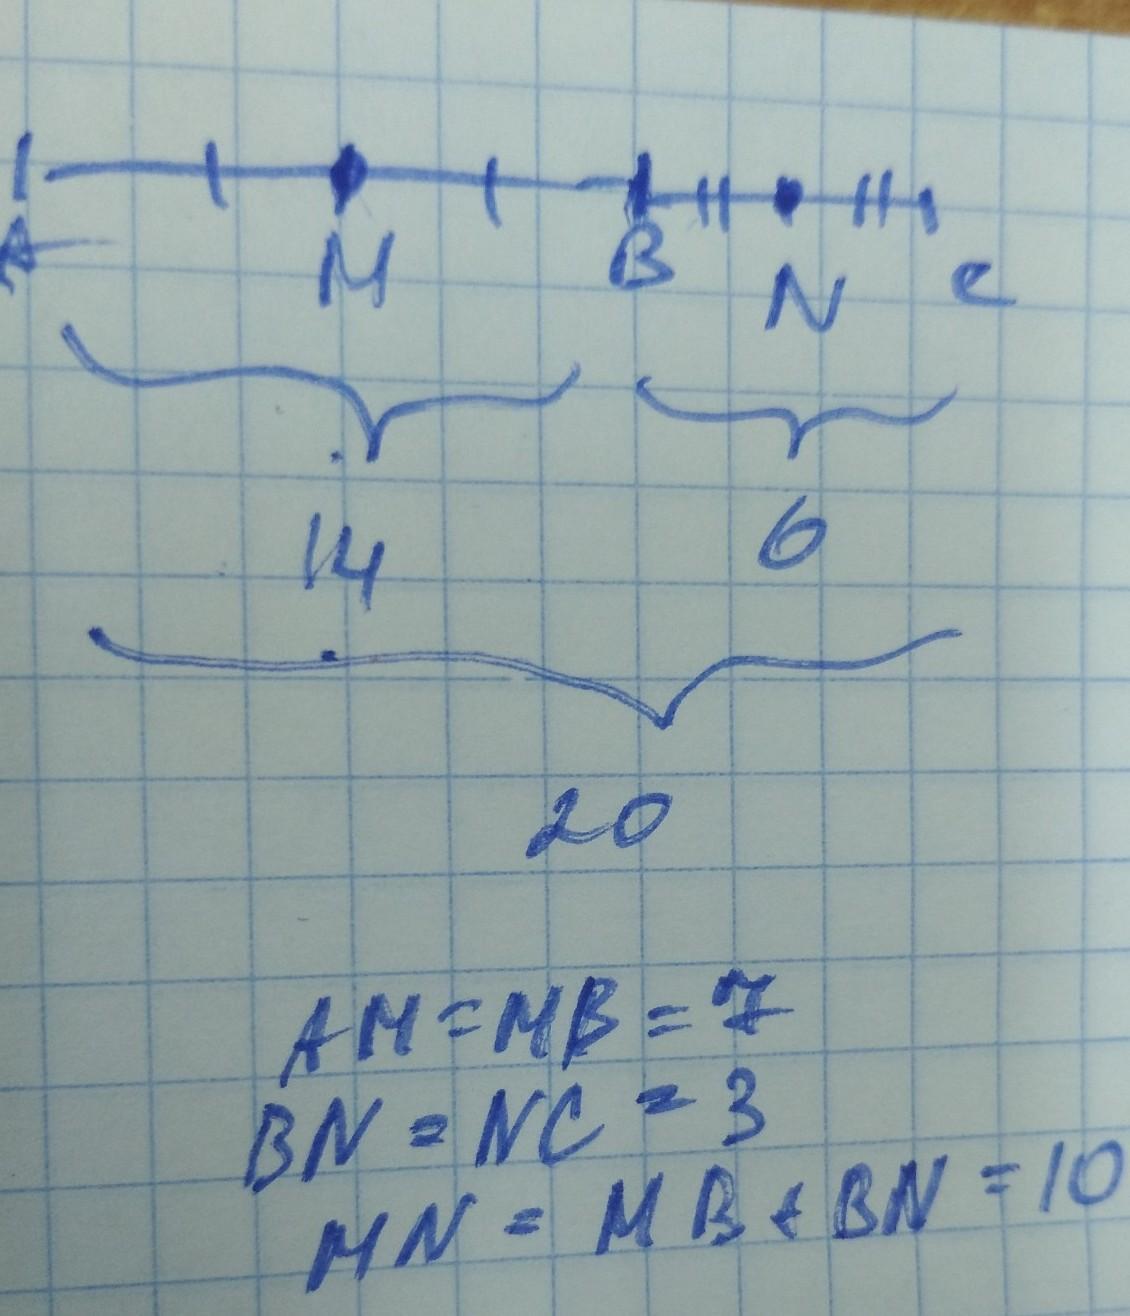 A M B N C
14 6
20
AM = MB = 7
BN = NC = 3
MN = MB + BN = 10